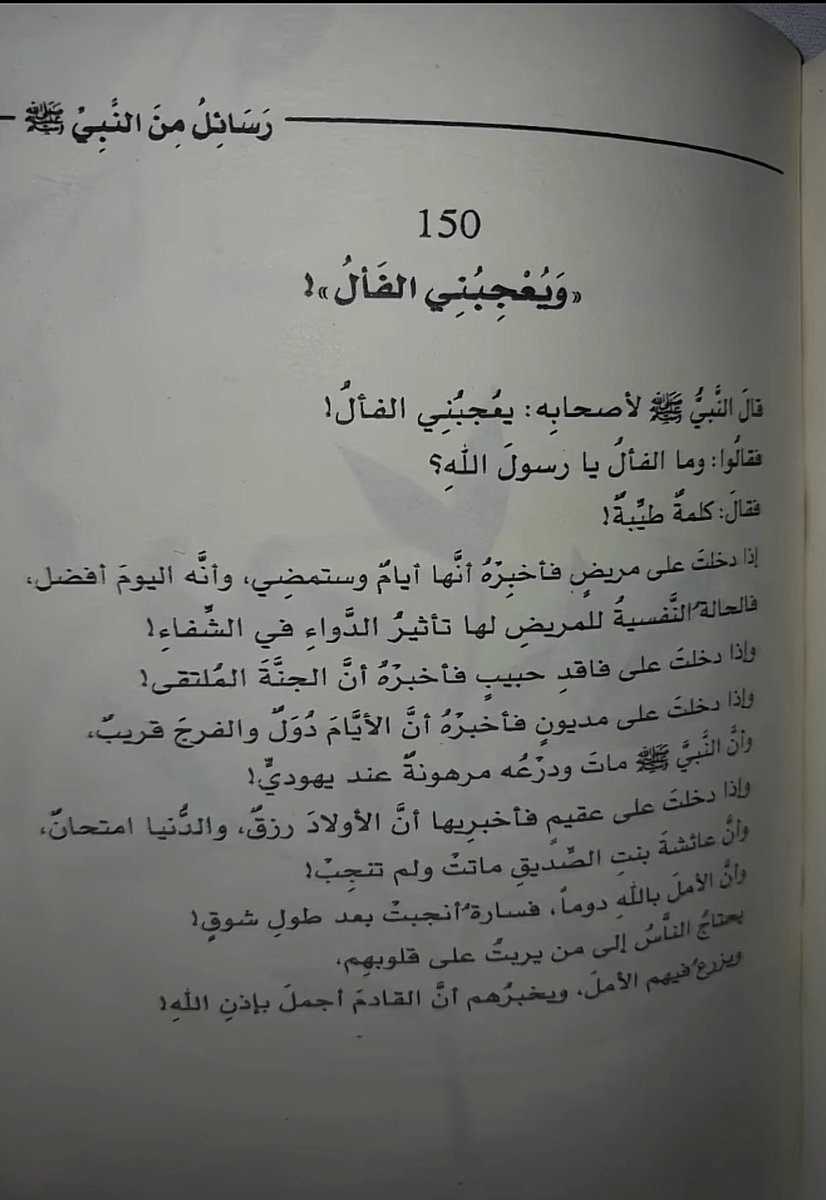 رَسَائِلُ مِنَ النَّبِيِّ ﷺ
150
«وَيُعْجِبُنِي الفَألُ»!
قالَ النَّبيُّ ﷺ لأصحابِه: يعُجبُنِي الفألُ!
فقالُوا: وما الفألُ يا رسولَ اللهِ؟
فقالَ: كلمةٌ طيِّبةٌ!
إذا دخلتَ على مريضٍ فأخبِرْهُ أنَّها أيامٌ وستمضِي، وأنَّه اليومَ أفضل،
فالحالةُ النَّفسيةُ للمريضِ لها تأثيرُ الدَّواءِ في الشِّفاءِ!
وإذا دخلتَ على فاقدِ حبيبٍ فأخبرْهُ أنَّ الجنَّةَ المُلتقى!
وإذا دخلتَ على مديونٍ فأخبرْهُ أنَّ الأيَّامَ دُوَلٌ والفرجَ قريبٌ،
وأنَّ النَّبيَّ ﷺ ماتَ ودرْعُه مرهونةٌ عند يهوديٍّ!
وإذا دخلتَ على عقيمٍ فأخبرِيها أنَّ الأولادَ رزقٌ، والدُّنيا امتحانٌ،
وأنَّ عائشةَ بنتِ الصِّديقِ ماتتْ ولم تنجِبْ!
وأنَّ الأملَ باللهِ دوماً، فسارةُ أنجبتْ بعد طولِ شوقٍ!
يحتاجُ النَّاسُ إلى من يربتُ على قلوبهِم،
ويزرعُ فيهم الأملَ، ويخبرُهم أنَّ القادمَ أجملَ بإذنِ اللهِ!